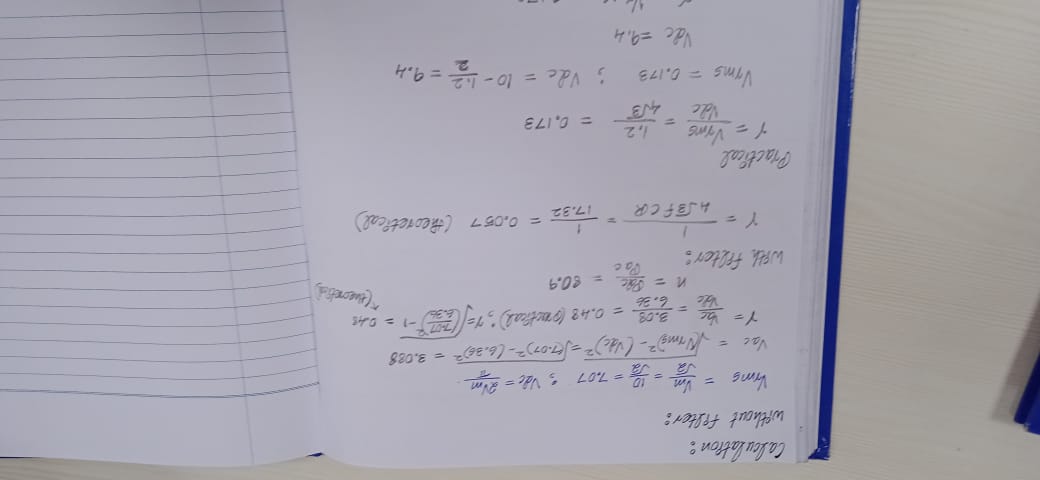 Calculation:
Without filter:
Vrms = Vm/√2 = 10/√2 = 7.07 ; Vdc = 2Vm/π
Vac = √(Vrms)² - (Vdc)² = √(7.07)² - (6.36)² = 3.088
γ = Vac/Vdc = 3.08/6.36 = 0.48 (practical) ; γ = √(7.07/6.36)² - 1 = 0.48 (theoretical)
n = Pdc/Pac = 80.9
With filter:
γ = 1/4√3 f C R = 1/17.32 = 0.057 (theoretical)
Practical
γ = Vrms/Vdc = 1.2/4√3 = 0.173
Vrms = 0.173 ; Vdc = 10 - 1.2/2 = 9.4
Vdc = 9.4